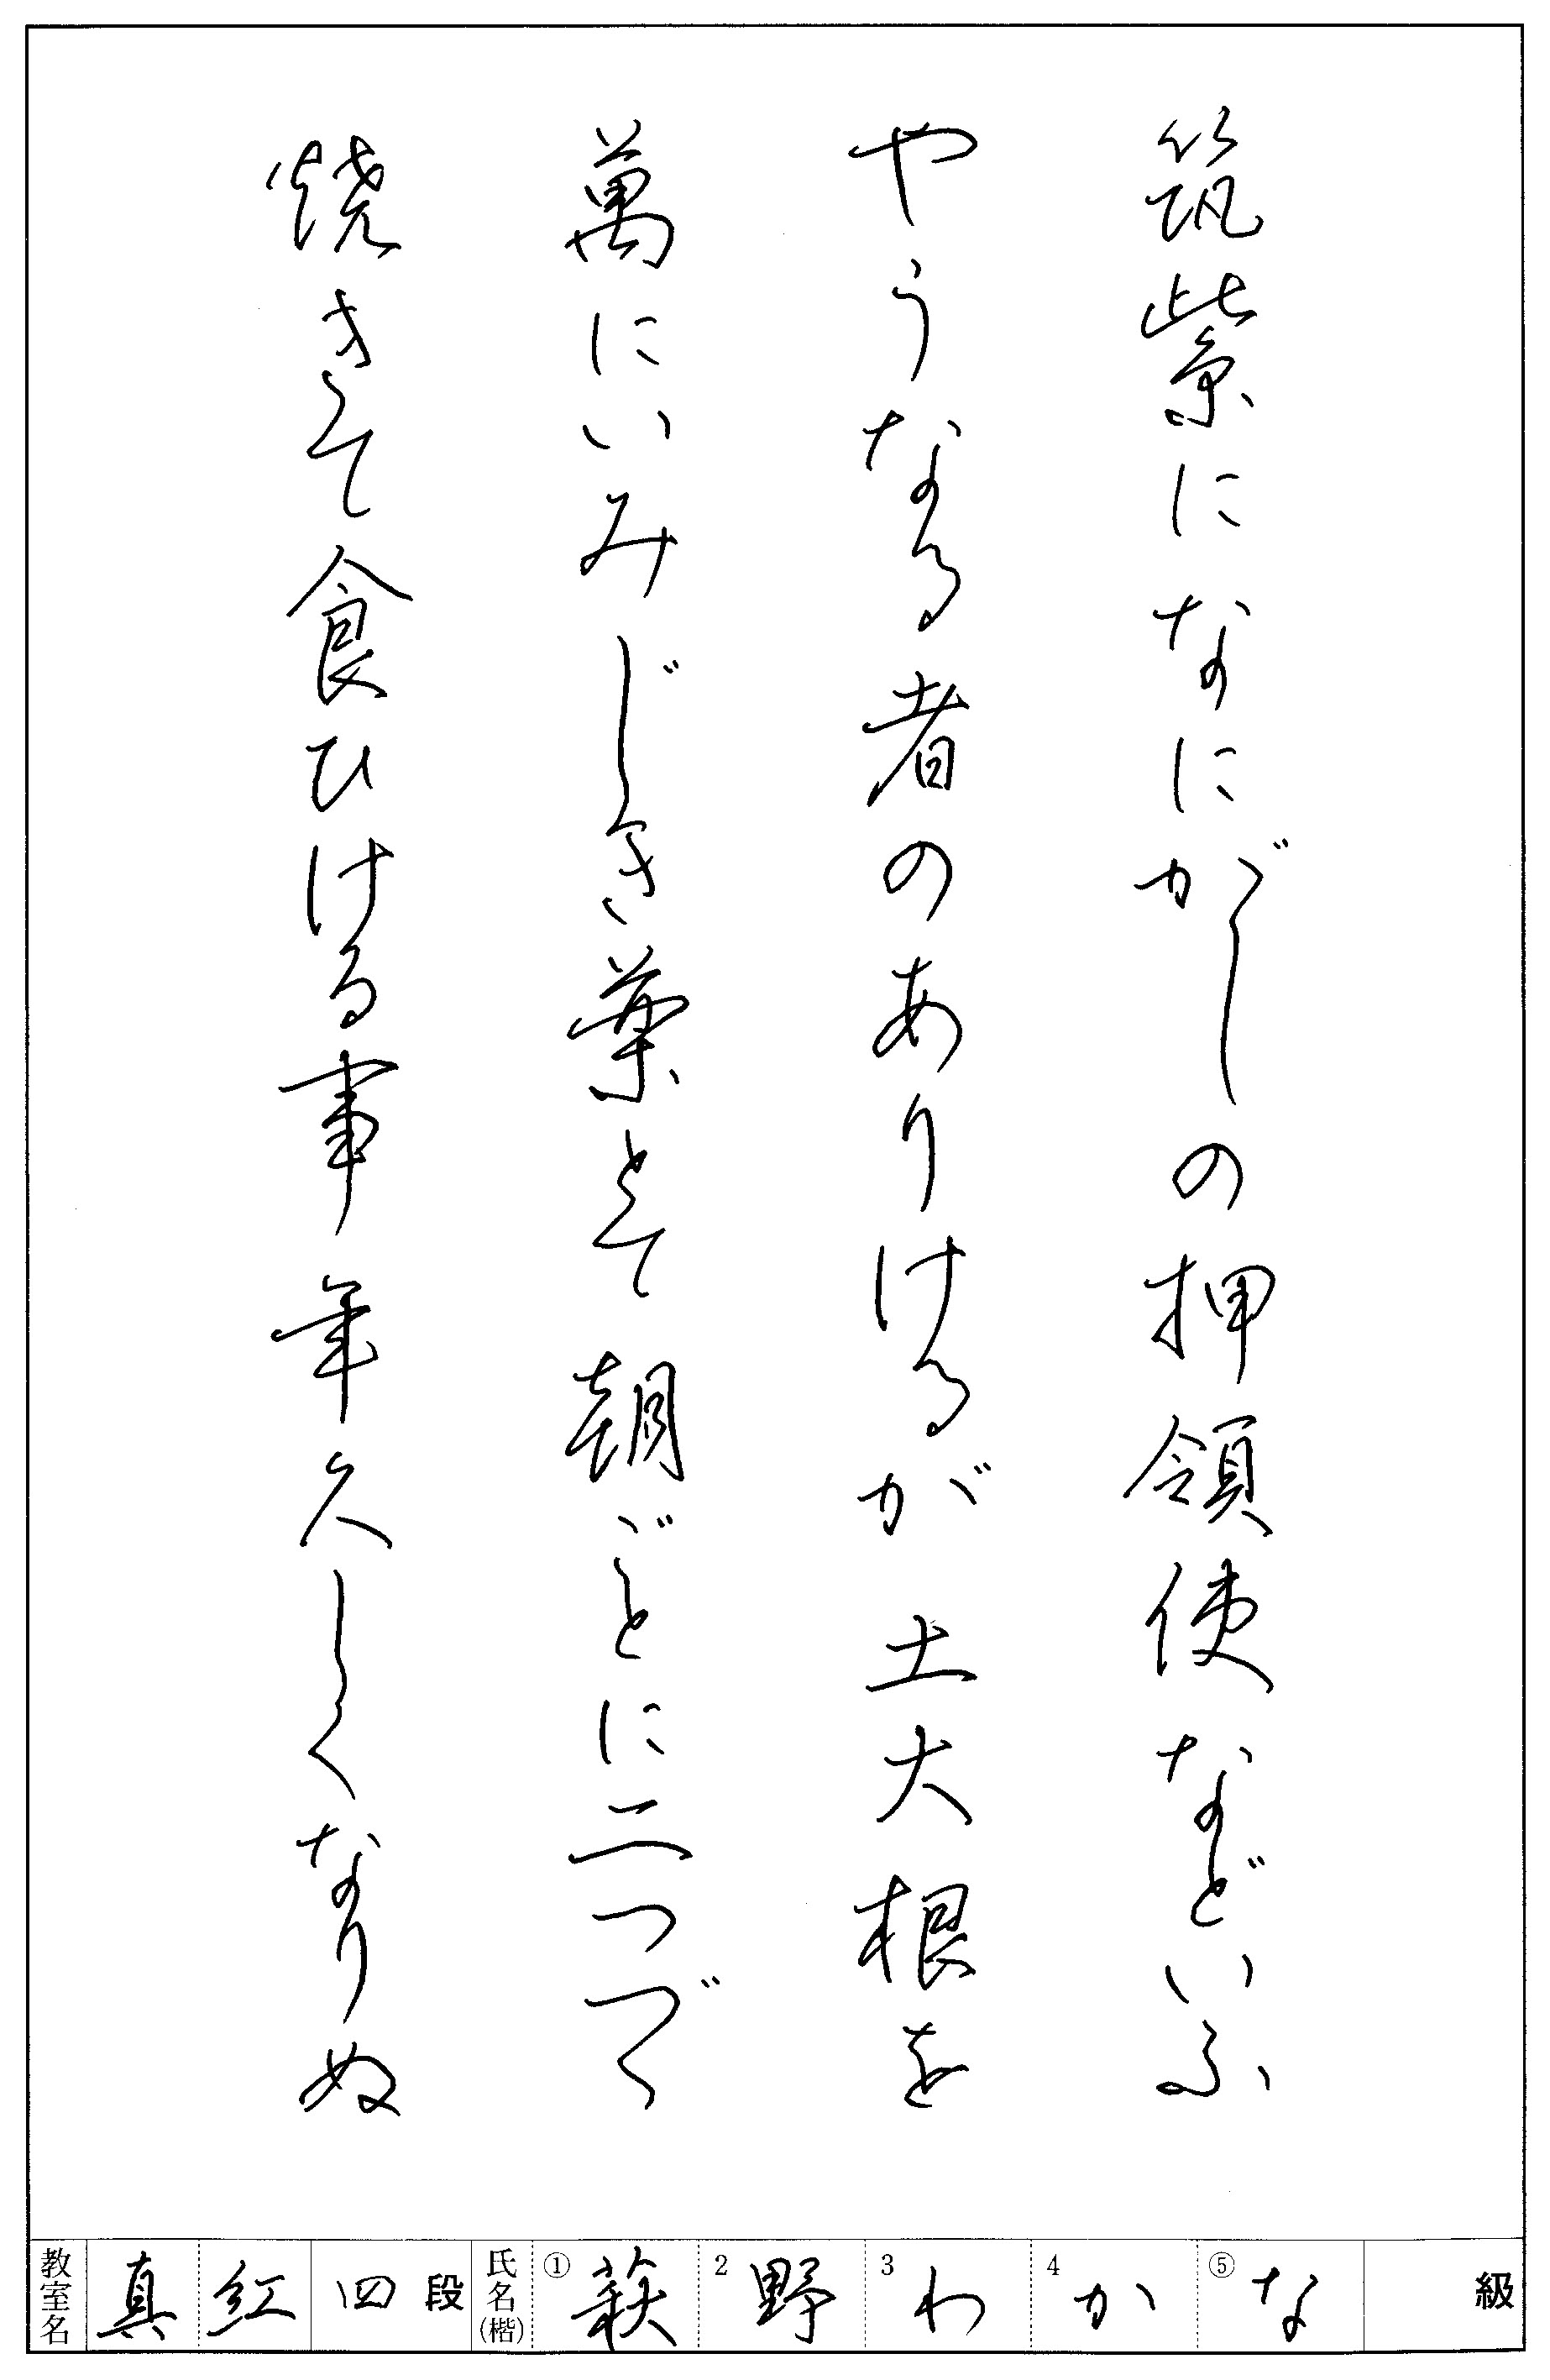 筑紫になにがしの押領使などいふ
やうなる者のありけるが土大根を
萬にいみじき薬とて朝ごとに二つづゝ
焼きて食ひける事年久しくなりぬ
教室名 真紅 四段 氏名(楷) ①萩 2野 3わ 4か ⑤な 級